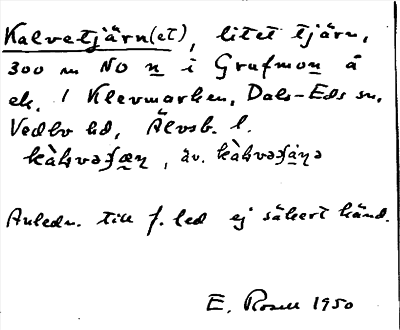 Kalvetjärn(et), litet tjärn,
300 m NO n i Grufmon å
ek. 1 Klevmarken, Dals-Eds sn,
Vedbo hd, Älvsb. l.
, äv.
Anledn. till f. led ej säkert känd.
E. Rosell 1950